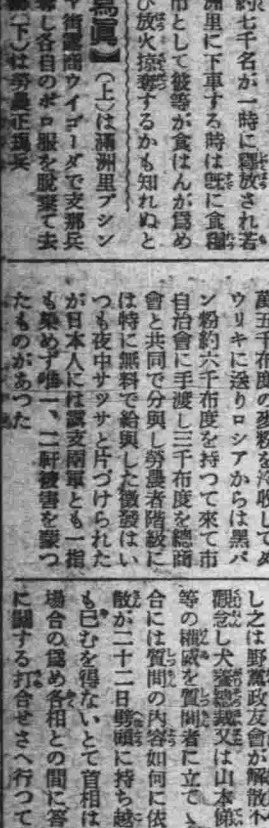 約七千名が一時に釋放され若
洲里に下車する時は既に食糧
市として彼等が食はんが爲め
び放火掠奪するかも知れぬと
寫眞】(上)は滿洲里プシン
街露商ウイゴーダで支那兵
奪し各自のボロ服を脱棄て去
(下)は勞農正規兵
萬五千布度の麥粉を沒收してダ
ウリキに送りロシアからは黑パ
ン粉約六千布度を持つて來て市
自治會に手渡し三千布度を總商
會と共同で分與し勞農者階級に
は特に無料で給與した徵發はい
つも夜中サツサと片づけられた
が日本人には露支兩軍とも一指
も染めず唯一、二軒被害を蒙つ
たものがあつた
し之は野黨政友會が解散不
觀念し犬養總裁又は山本悌
等の權威を質問者に立てゝ
合には質問の內容如何に依
散が二十二日劈頭に持ち越
も已むを得ないとて首相は
場合の爲め各相との間に答
に關する打合せさへ行つて